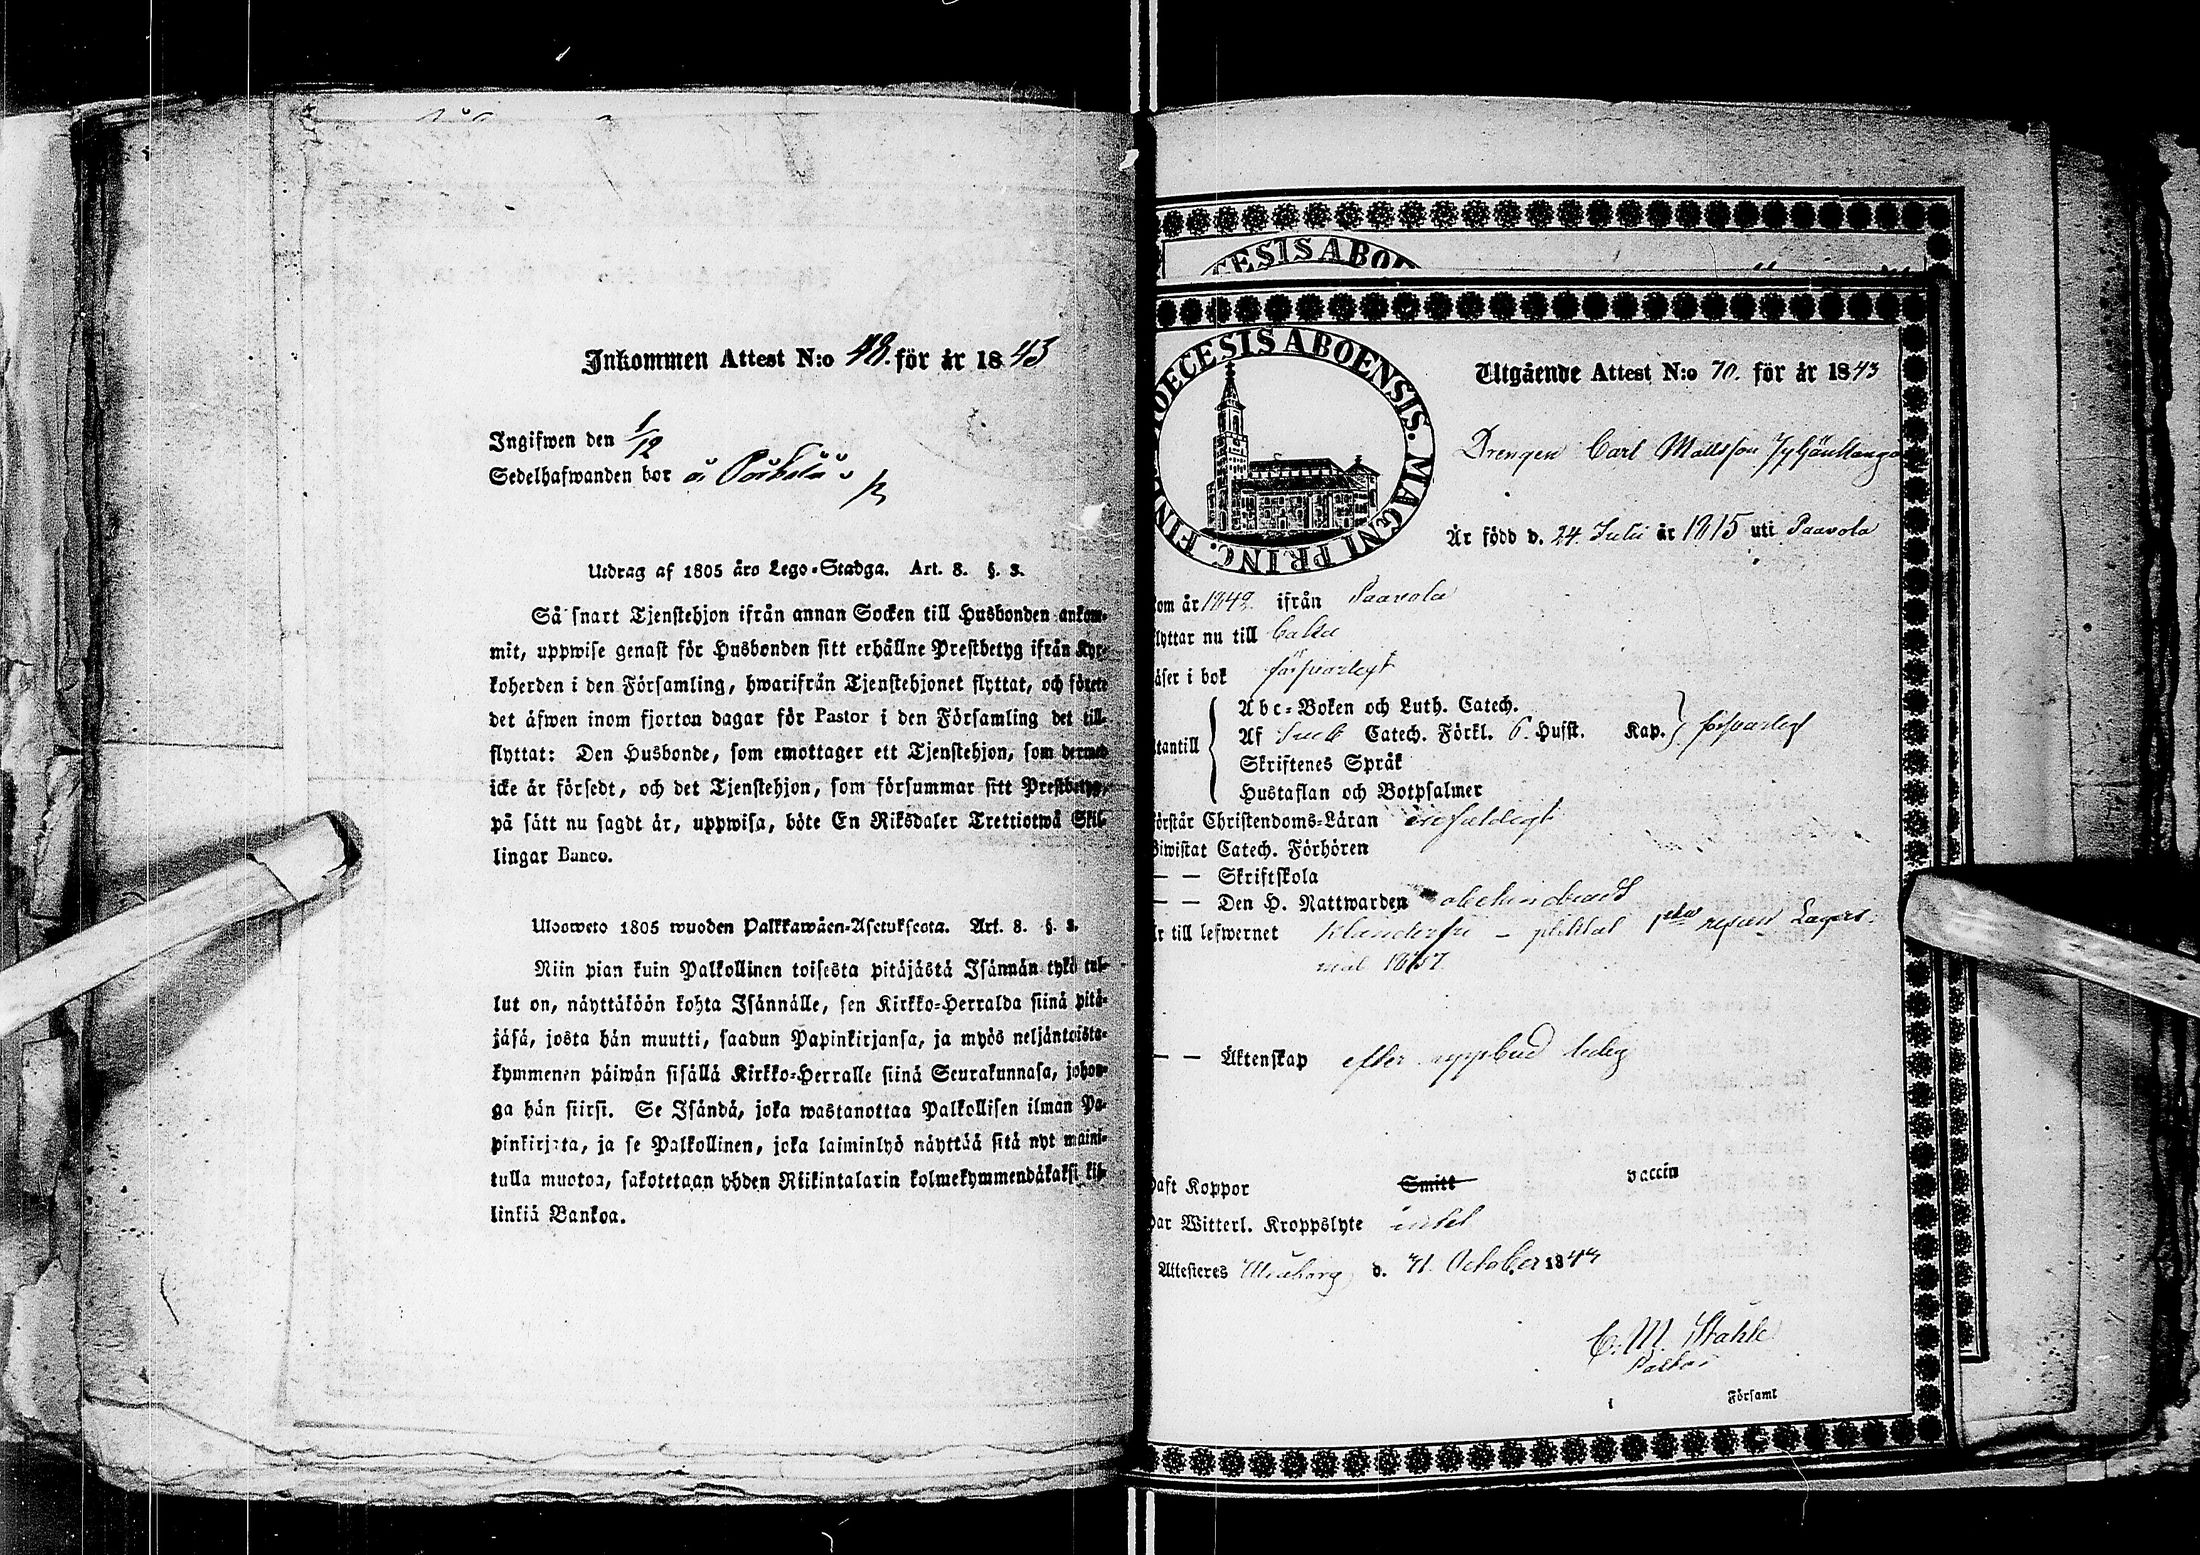 Inkommen Attest N:o 48. för år 1843
Ingifwen den 1/12
Sedelhafwanden bor å
Utdrag af 1805 års Lego-Stadga. Art. 8. §. 3.
Så snart Tjenstehjon ifrån annan Socken till Husbonden ankom-
mit, uppwise genast för Husbonden sitt erhållne Prestbetyg ifrån Kyr-
koherden i den Församling, hwarifrån Tjenstehjonet flyttat, och förete
det äfwen inom fjorton dagar för Pastor i den Församling det till-
flyttat: Den Husbonde, som emottager ett Tjenstehjon, som dermed
icke är försedt, och det Tjenstehjon, som försummar sitt Prestbetyg,
på sätt nu sagdt är, uppwisa, böte En Riksdaler Trettiotwå Skil-
lingar Banco.
Uloosweto 1805 wuoden Palkkawäen-Asetuksesta. Art. 8. §. 3.
Niin pian kuin Palkollinen toisesta pitäjästä Isännän tykö tul-
lut on, näyttäköön kohta Isännälle, sen Kirkko-Herralda siinä pitä-
jäsä, josta hän muutti, saadun Papinkirjansa, ja myös neljäntoista-
kymmenen päiwän sisällä Kirkko-Herralle siinä Seurakunnasa, johon-
ga hän siirsi. Se Isändä, joka wastanottaa Palkollisen ilman Pa-
pinkirjata, ja se Palkollinen, joka laiminlyö näyttää sitä nyt maini-
tulla muotoa, sakotetaan yhden Riikintalarin kolmekymmendäkaksi kil-
linkiä Bankoa.
CESIS ABOE
OECESIS ABOENSIS. MAGNI PRINC. FIN
Utgående Attest N:o 70. för år 1843
Drengen Carl Mattsson
Är född d. 24 Julii år 1815 uti Paavola
om år 1842 ifrån Paavola
lyttar nu till
äser i bok försvarligt
tantill
Abc-Boken och Luth. Catech.
Af Sveb Catech. Förkl. 6. Husst. Kap. försvarligt
Skriftenes Språk
Hustaflan och Botpsalmer
örstår Christendoms-Läran enfaldigt
Biwistat Catech. Förhören
— — Skriftskola
— — Den H. Nattwarden obehindrad
r till lefwernet klanderfri – pliktat 1sta resan Lägers-
mål
— — Äktenskap efter uppbud ledig
haft Koppor Smitt vaccin
har Witterl. Kroppslyte intet
Attesteres Uleåborg d. 31. October 1843
C. M. Stahle
Pastor
Församl